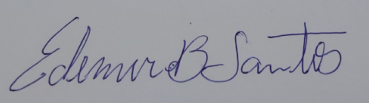 Edemir B Santos